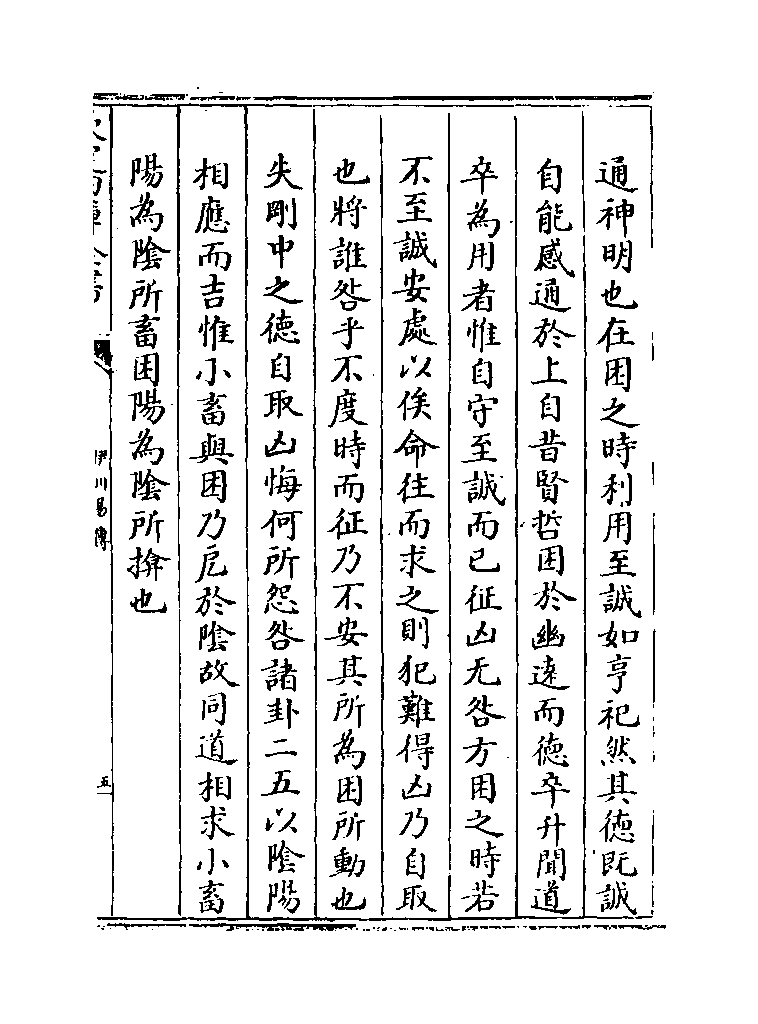 通神明也在困之時利用至誠如亨祀然其德既誠
自能感通於上自昔賢哲困於幽遠而德卒升聞道
卒為用者惟自守至誠而已征凶无咎方困之時若
不至誠安處以俟命往而求之則犯難得凶乃自取
也將誰咎乎不度時而征乃不安其所為困所動也
失剛中之德自取凶悔何所怨咎諸卦二五以陰陽
相應而吉惟小畜與困乃戹於陰故同道相求小畜
陽為陰所畜困陽為陰所揜也
伊川易傳
五